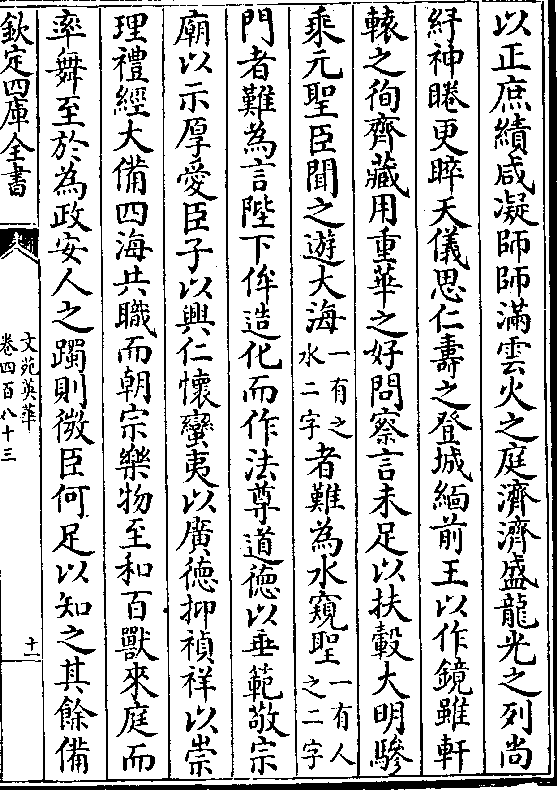 以正庶績咸凝師師滿雲火之庭濟濟盛龍光之列尚
紆神睠更睟天儀思仁壽之登城緬前王以作鏡雖軒
轅之徇齊藏用重華之好問察言未足以扶轂大明驂
乘元聖臣聞之遊大海一有之水二字者難為水窺聖一有人之二字
門者難為言陛下侔造化而作法尊道德以垂範敬宗
廟以示厚愛臣子以興仁懷蠻夷以廣德抑禎祥以崇
理禮經大備四海共職而朝宗樂物至和百獸來庭而
率舞至於為政安人之躅則微臣何足以知之其餘備
欽定四庫全書
文苑英華
卷四百八十三
十一